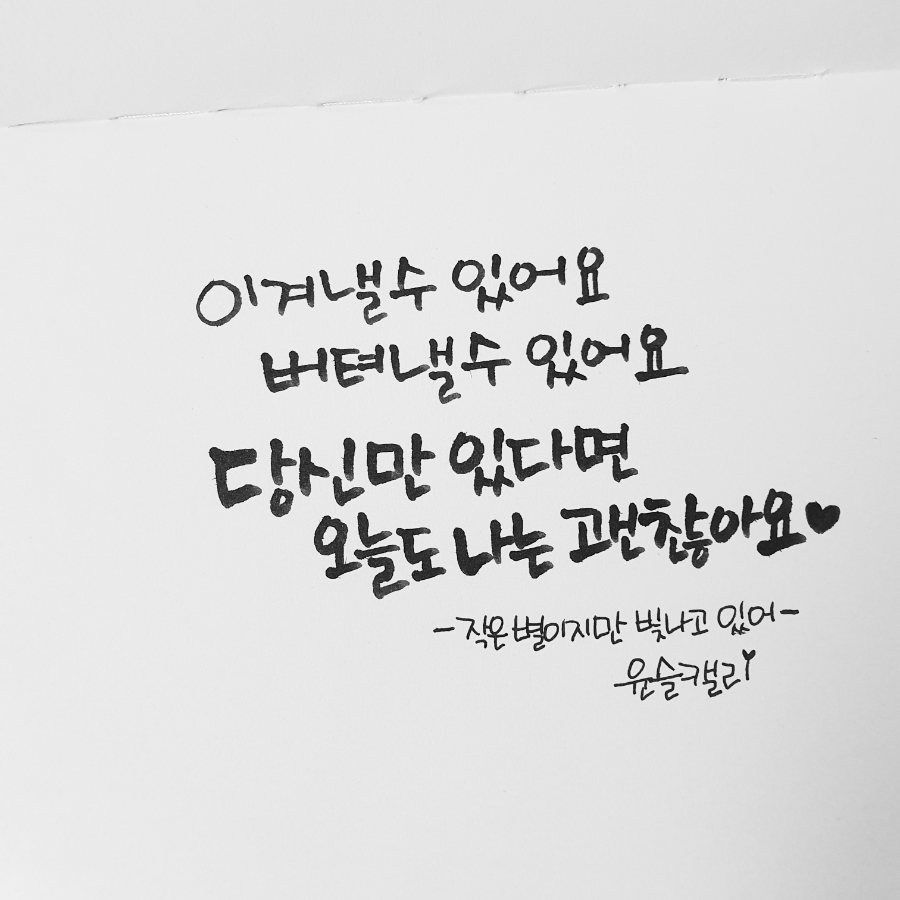 이겨낼수 있어요
버텨낼수 있어요
당신만 있다면
오늘도 나는 괜찮아요♥
-작은 별이지만 빛나고 있어-
윤슬캘리